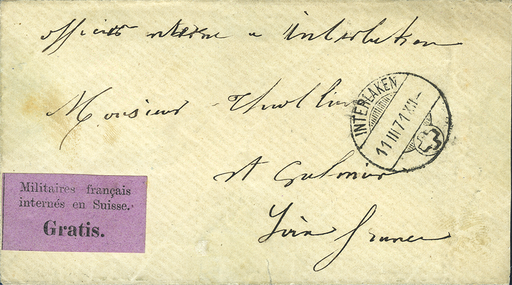 officier interné a Interlaken
Monsieur
INTERLAKEN
11 III 71 XII-
Militaires français
internés en Suisse.
Gratis.
st Galmier
Loire france